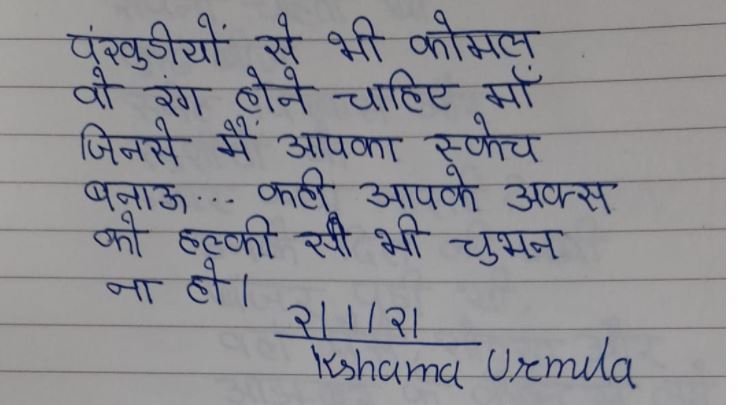 पंखुडीयों से भी कोमल
वो रंग होने चाहिए माँ
जिनसे मैं आपका स्केच
बनाऊ... कही आपके अक्स
को हल्की सी भी चुभन
ना हो।
२।1।२1
Kshama Urmila